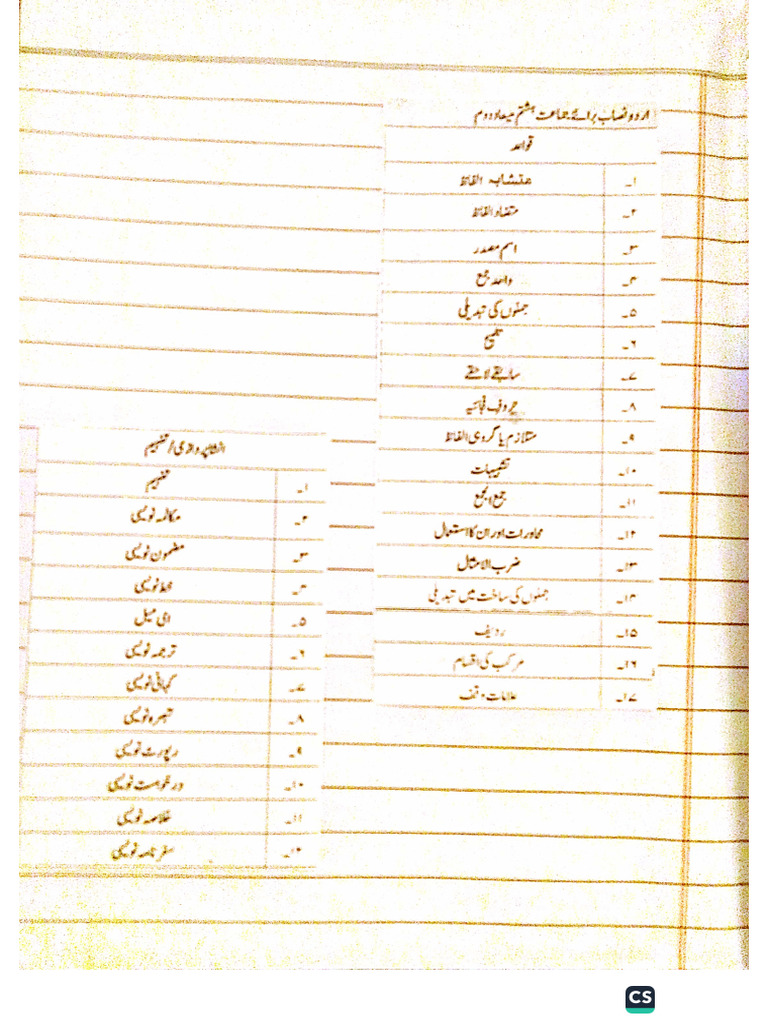 اردو نصاب برائے جماعت ہشتم میعاد دوم
قواعد
۱۔ متشابہ الفاظ
۲۔ متضاد الفاظ
۳۔ اسم مصدر
۴۔ واحد جمع
۵۔ جملوں کی تبدیلی
۶۔ تلمیح
۷۔ سابقے لاحقے
۸۔ حروف فجائیہ
۹۔ متلازم یا گروہی الفاظ
۱۰۔ تشبیہات
۱۱۔ جمع الجمع
۱۲۔ محاورات اور ان کا استعمال
۱۳۔ ضرب الامثال
۱۴۔ جملوں کی ساخت میں تبدیلی
۱۵۔ ردیف
۱۶۔ مرکب کی اقسام
۱۷۔ علامات وقف
انشا پردازی / تفہیم
۱۔ تفہیم
۲۔ مکالمہ نویسی
۳۔ مضمون نویسی
۴۔ خط نویسی
۵۔ ای میل
۶۔ ترجمہ نویسی
۷۔ کہانی نویسی
۸۔ تبصرہ نویسی
۹۔ رپورٹ نویسی
۱۰۔ درخواست نویسی
۱۱۔ خلاصہ نویسی
۱۲۔ سفر نامہ نویسی
CS